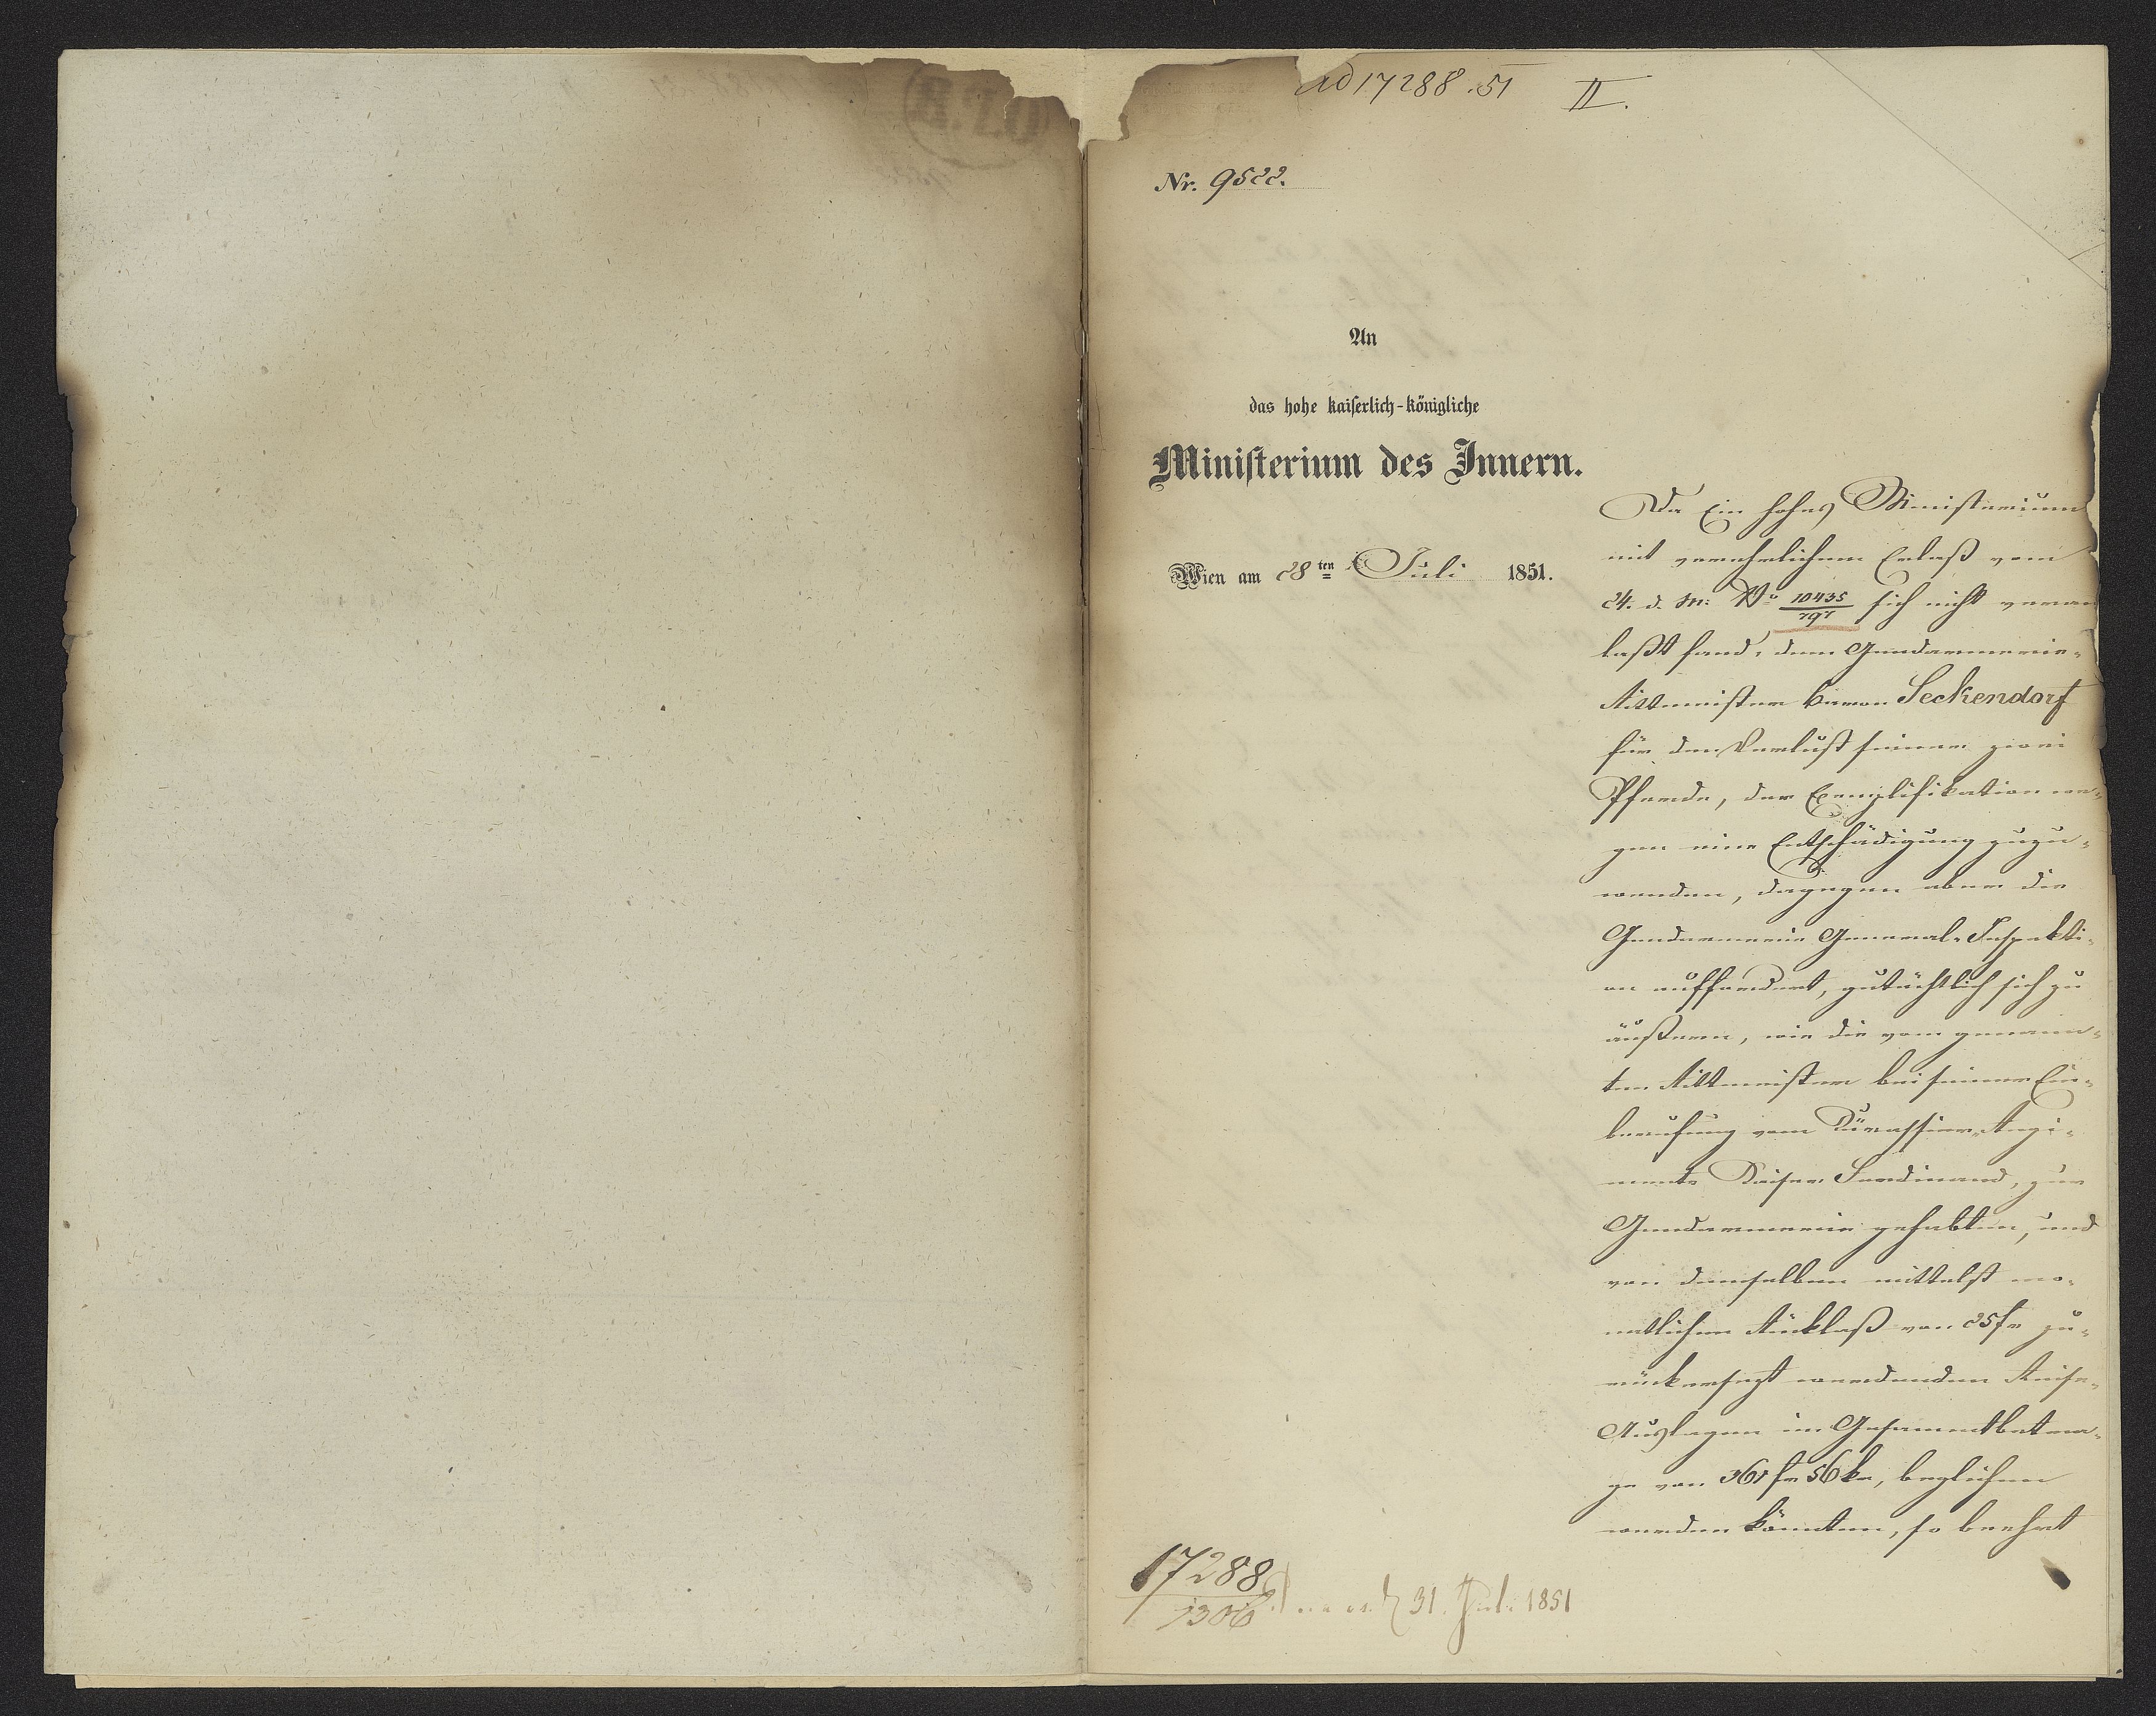 ad 17288.51 II.
Nr. 9522.
An
das hohe kaiserlich-königliche
Ministerium des Innern.
Wien am 28ten Juli 1851.
Da Ein hohes Ministerium
mit verehrlichem Erlaß vom
24. d. M: No 10435/791 sich nicht veran
laßt fand, dem Gendarmerie-
Rittmeister Baron Seckendorf
für den Verlust seiner zwei
Pferde, der Exemplifikation we-
gen eine Entschädigung zuzu-
wenden, dagegen aber die
Gendarmerie General-Inspekti-
on auffordert, gutächtlich sich zu
äußern, wie die vom genann-
ten Rittmeister bei seiner Ein-
berufung vom Kürassier-Regi-
mente Kaiser Ferdinand, zur
Gendarmerie gehabten, und
von demselben mittelst mo-
natlichen Rücklaß von 25 fr zu-
rückersezt werdenden Reise-
Auslagen im Gesammtbetra-
ge von 361 fr 56 kr, beglichen
werden könnten, so beehrt
17288/1306
31. Juli 1851